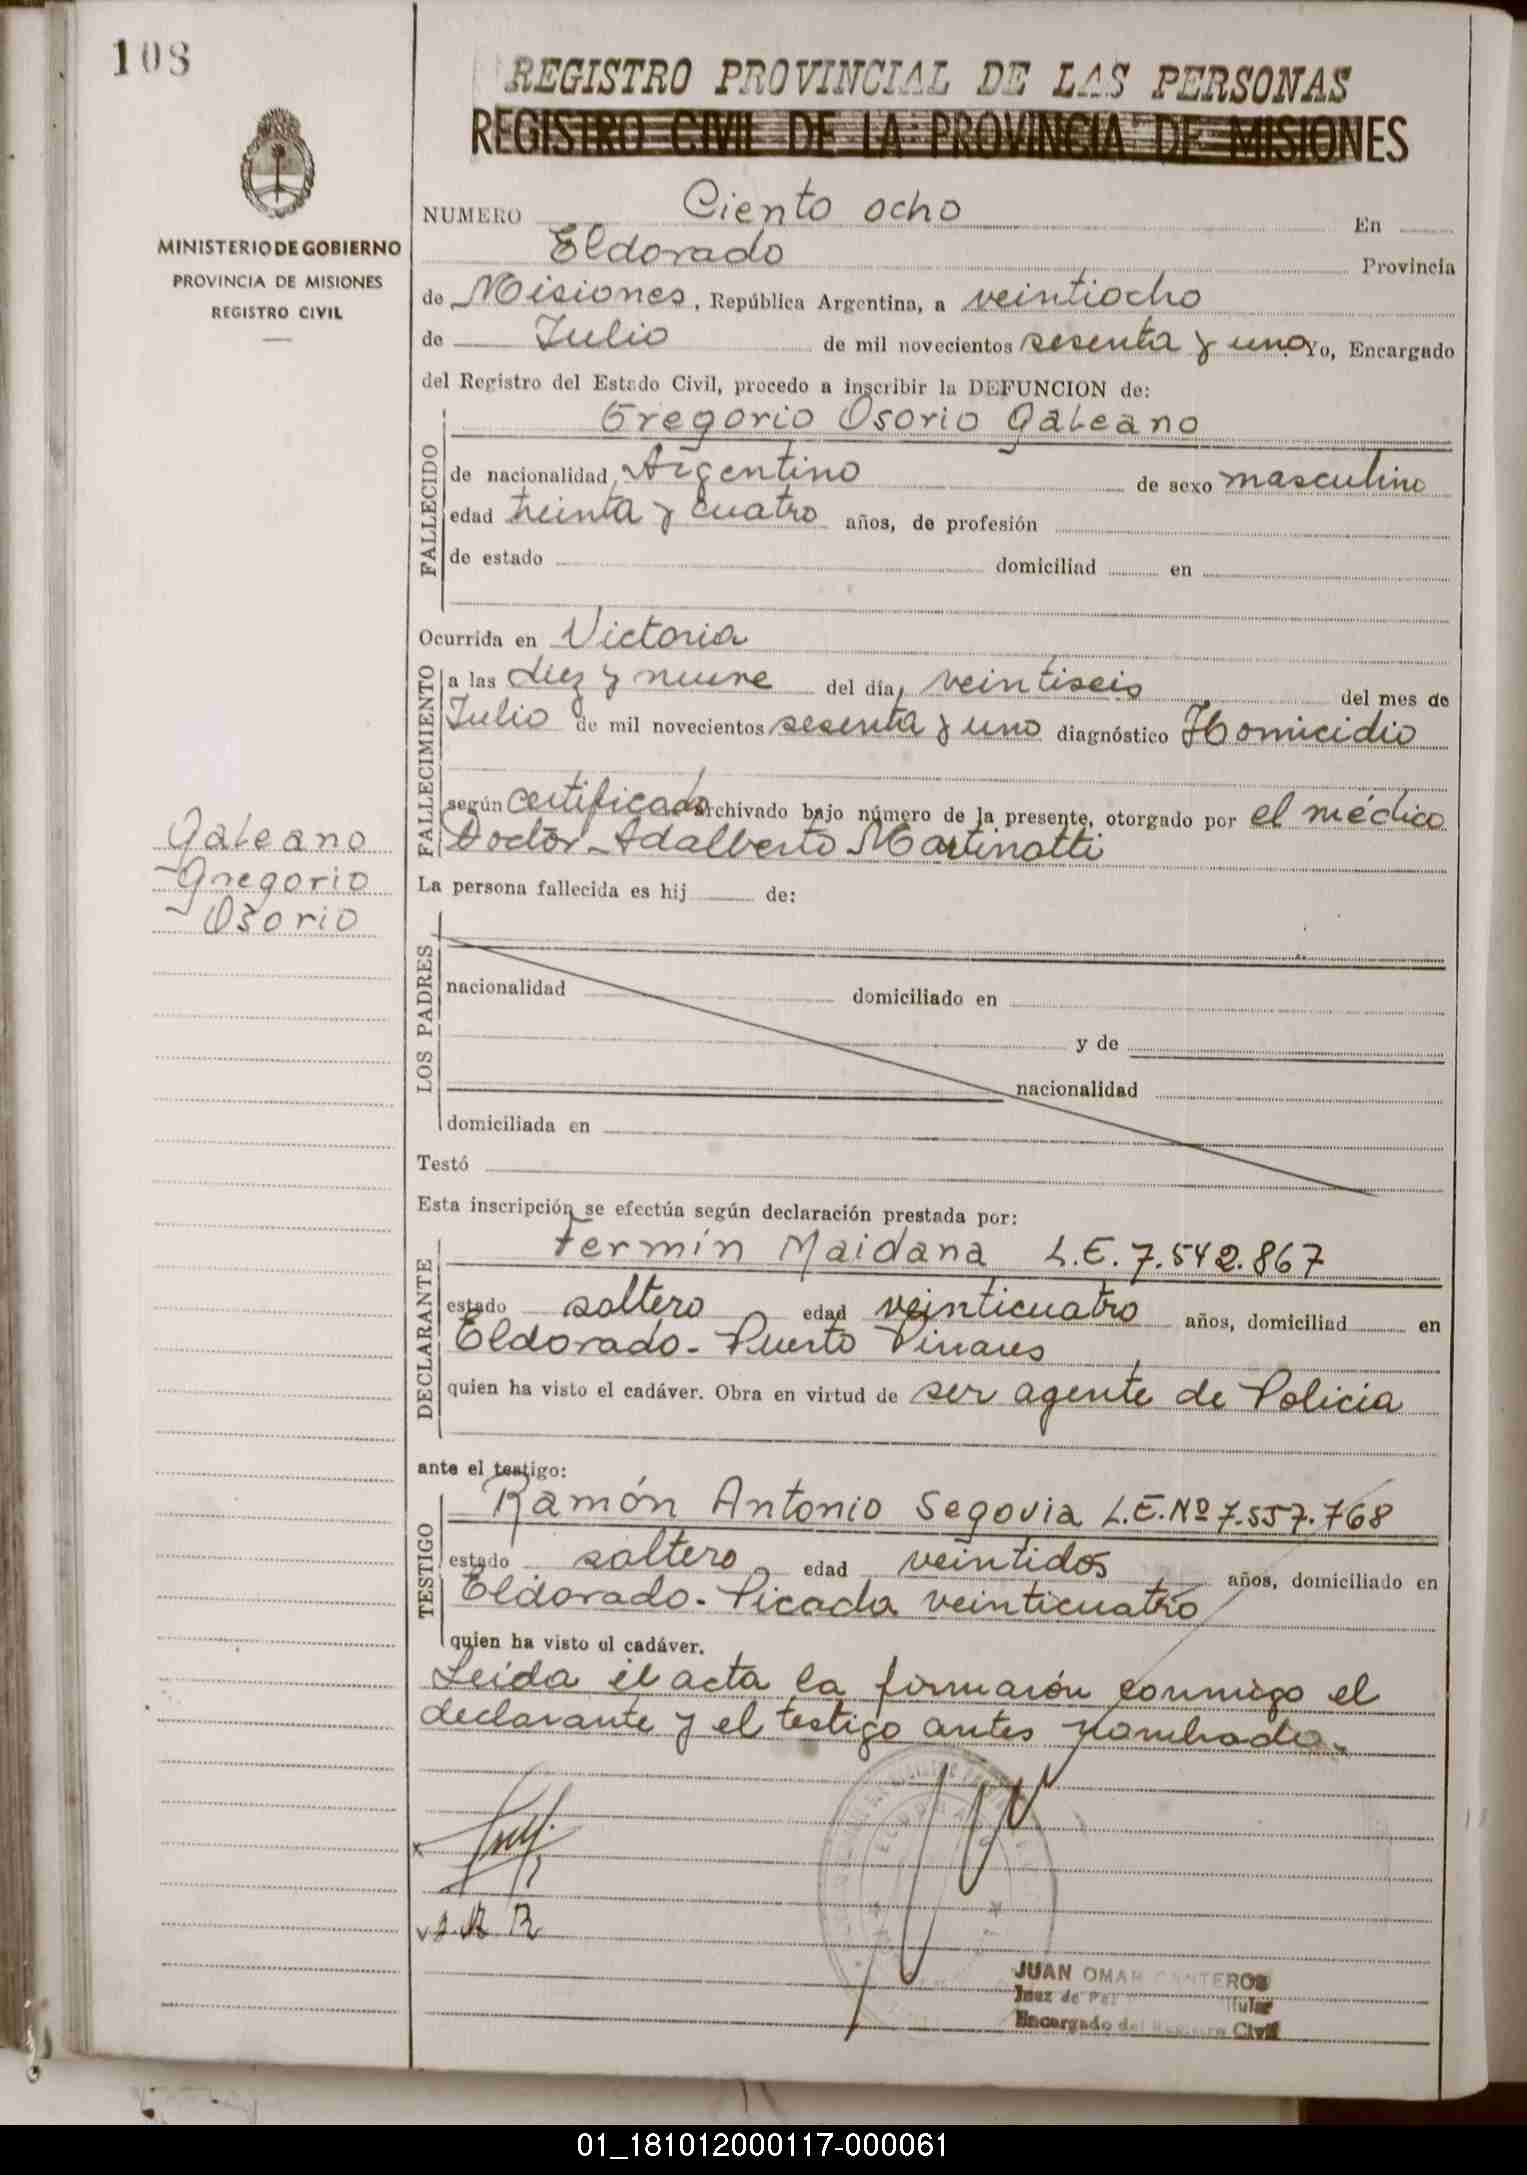 108
REGISTRO PROVINCIAL DE LAS PERSONAS
REGISTRO CIVIL DE LA PROVINCIA DE MISIONES
MINISTERIO DE GOBIERNO
PROVINCIA DE MISIONES
REGISTRO CIVIL
NUMERO Ciento ocho En
Eldorado Provincia
de Misiones, República Argentina, a veintiocho
de Julio de mil novecientos sesenta y uno Yo, Encargado
del Registro del Estado Civil, procedo a inscribir la DEFUNCION de:
FALLECIDO
Gregorio Osorio Galeano
de nacionalidad Argentino de sexo masculino
edad treinta y cuatro años, de profesión
de estado domiciliad en
Ocurrida en Victoria
FALLECIMIENTO
a las diez y nueve del día, veintiseis del mes de
Julio de mil novecientos sesenta y uno diagnóstico Homicidio
según certificado archivado bajo número de la presente, otorgado por el médico
Doctor Adalberto Martinotti
Galeano
Gregorio
Osorio
La persona fallecida es hij de:
LOS PADRES
nacionalidad domiciliado en
y de
nacionalidad
domiciliada en
Testó
Esta inscripción se efectúa según declaración prestada por:
DECLARANTE
Fermín Maidana L.E. 7.542.867
estado soltero edad veinticuatro años, domiciliad en
Eldorado - Puerto Pinares
quien ha visto el cadáver. Obra en virtud de ser agente de Policía
ante el testigo:
TESTIGO
Ramón Antonio Segovia L.E. Nº 7.557.768
estado soltero edad veintidos años, domiciliado en
Eldorado - Picada veinticuatro
quien ha visto el cadáver.
Leída el acta la firmarón conmigo el
declarante y el testigo antes nombrado.
JUAN OMAR CANTEROS
Juez de Paz Titular
Encargado del Registro Civil
01_181012000117-000061